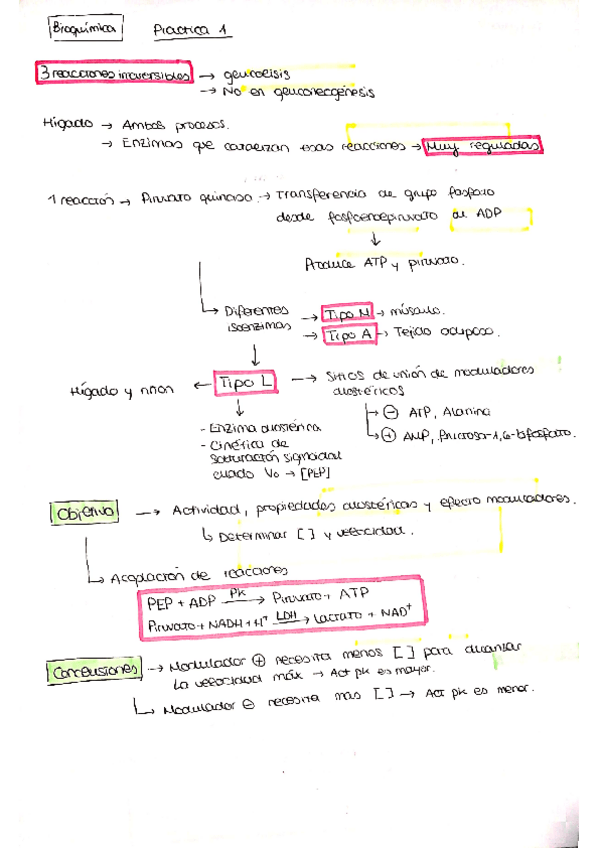 Bioquímica Practica 1
3 reacciones irreversibles → glucolisis
→ No en gluconeogénesis
Hígado → Ambos procesos.
→ Enzimas que catalizan esas reacciones → Muy reguladas
1 reacción → Piruvato quinasa → Transferencia de grupo fosfato
desde fosfoenolpiruvato al ADP
↓
Produce ATP y piruvato.
↳ Diferentes isoenzimas → Tipo M → músculo.
→ Tipo A → Tejido adiposo.
↓
Hígado y riñon ← Tipo L → Sitios de unión de moduladores
alostéricos
↳ ⊖ ATP, Alanina
↳ ⊕ AMP, fructosa-1,6-bifosfato.
↓
- Enzima alostérica
- Cinética de
saturación sigmoidal
cuado Vo → [PEP]
Objetivo → Actividad, propiedades alostéricas y efecto moduladores.
↳ Determinar [ ] y velocidad.
↳ Acoplación de reacciones
PEP + ADP PK → Piruvato + ATP
Piruvato + NADH + H⁺ LDH → Lactato + NAD⁺
Conclusiones → Modulador ⊕ necesita menos [ ] para alcanzar
la velocidad máx → Act pk es mayor.
↳ Modulador ⊖ necesita mas [ ] → Act pk es menor.